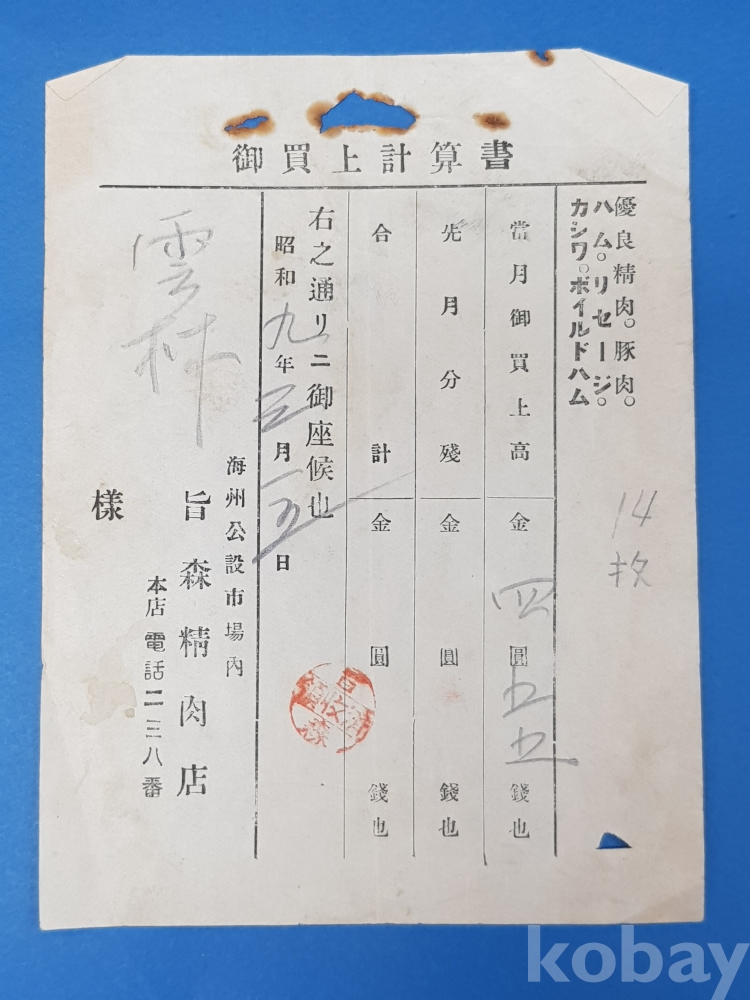 御買上計算書
優良精肉。豚肉。
ハム。リセージ。
カシワ。ボイルドハム
14枚
當月御買上高 金 四圓五五錢也
先月分殘 金 圓 錢也
合計 金 圓 錢也
右之通リニ御座候也
昭和九年三月一五日
海州公設市場內
旨森精肉店
本店電話二三八番
雲林
樣
kobay